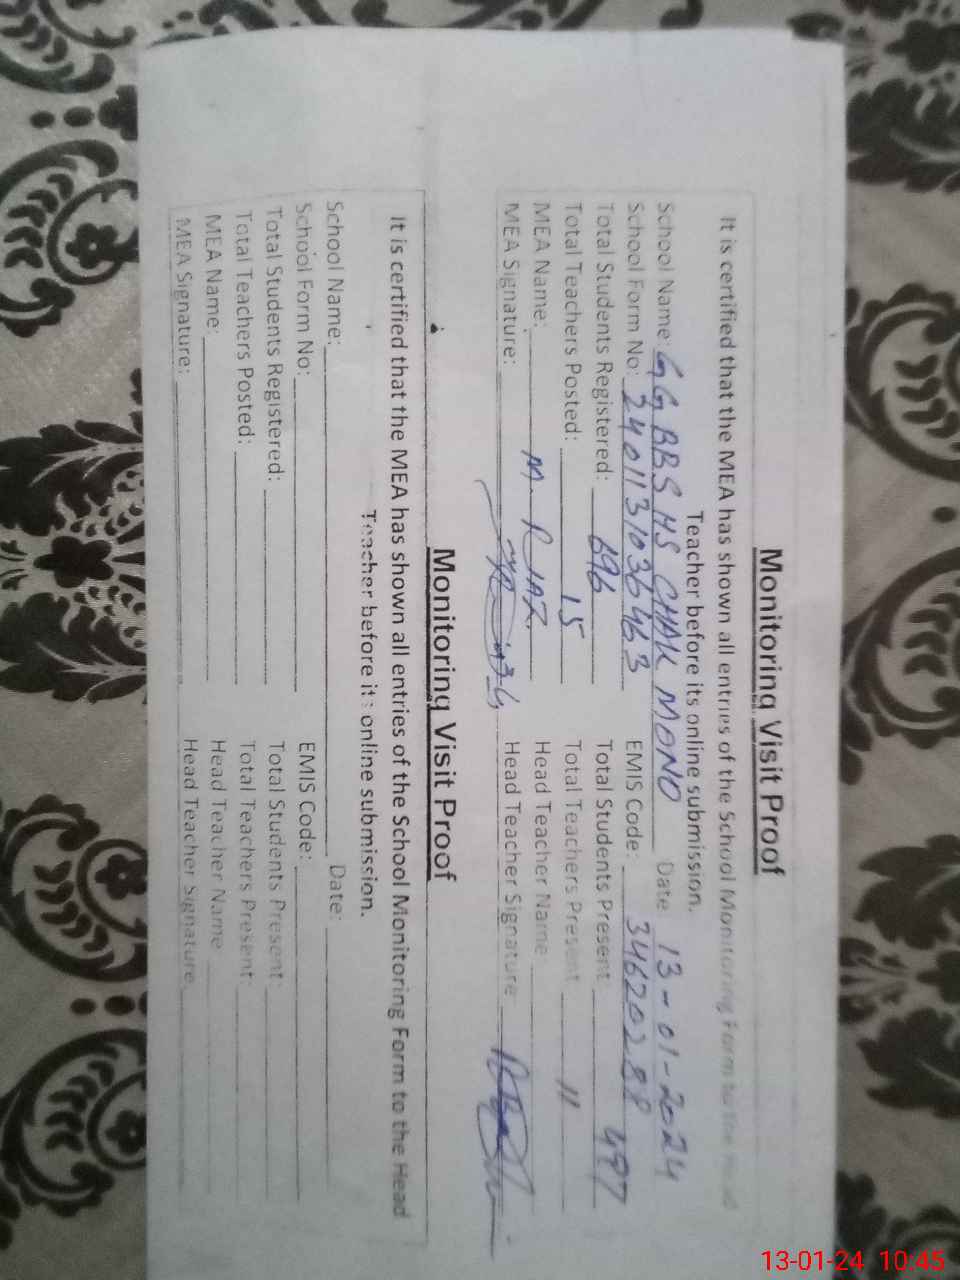 Monitoring Visit Proof
It is certified that the MEA has shown all entries of the School Monitoring Form to the Head
Teacher before its online submission.
School Name: GGBBS HS CHAK MONO Date 13-01-2024
School Form No: 2401131036463 EMIS Code: 34620288
Total Students Registered: 696 Total Students Present: 497
Total Teachers Posted: 15 Total Teachers Present 11
MEA Name: M. RIAZ. Head Teacher Name
MEA Signature: Head Teacher Signature
Monitoring Visit Proof
It is certified that the MEA has shown all entries of the School Monitoring Form to the Head
Teacher before its online submission.
School Name: Date:
School Form No: EMIS Code:
Total Students Registered: Total Students Present:
Total Teachers Posted: Total Teachers Present:
MEA Name: Head Teacher Name
MEA Signature: Head Teacher Signature
13-01-24 10:45